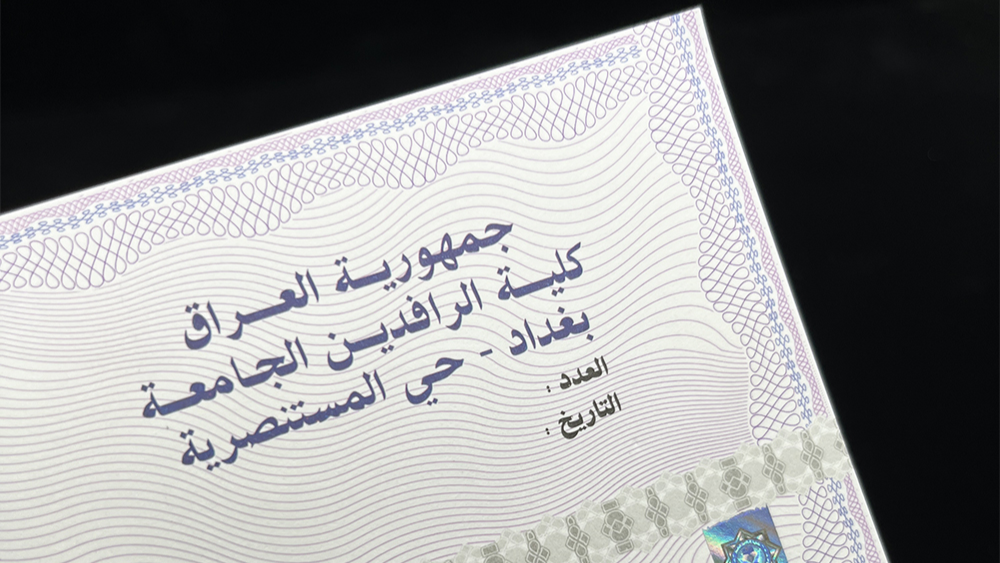 جمهورية العراق
كلية الرافدين الجامعة
بغداد - حي المستنصرية
العدد :
التاريخ :